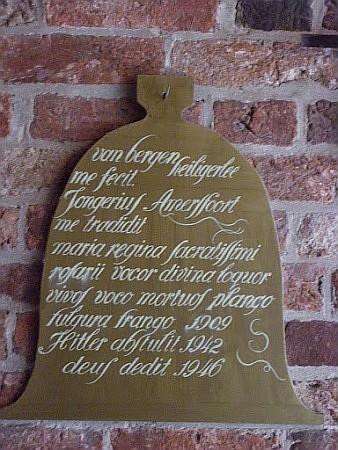 van bergen heiligerlee
me fecit.
Jongerius Amersfoort
me tradidit
maria regina sacratissimi
rosarii vocor divina loquor
vivos voco mortuos plango
fulgura frango 1909
Hitler abstulit 1942
deus dedit 1946